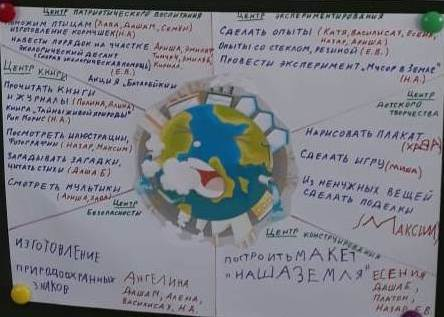 Центр патриотического воспитания
Поможем птицам (Лава, Даша М, Семён)
изготовление кормушек (Н.А.)
Навести порядок на участке
экологический десант
(скорая экологическая помощь)
(Е.В.)
Ариша, Эмилия
Кирилл
Акция „Батарейки"
Центр экспериментирования
Сделать опыты (Катя, Василиса У, Есения, Назар, Ариша)
Опыты со стеклом, резиной (Е.В.)
Провести эксперимент „Мусор в Земле"
(Н.А.)
Центр книги
Прочитать книги
и журналы (Полина, Алина)
Книга „Тайны живой природы"
Рик Морис (Н.А.)
Посмотреть иллюстрации,
фотографии (Назар, Максим)
Загадывать загадки,
читать стихи (Даша Б)
Смотреть мультики
Центр
Детского
творчества
Нарисовать плакат
Сделать игру (Миша)
Из ненужных вещей
сделать поделки
Максим
Центр
Безопасности
изготовление
природоохранных
знаков
Ангелина
Даша М, Алёна,
Василиса У, Н.А.
Центр конструирования
построить макет
„Наша Земля"
Есения
Даша Б,
Платон,
Назар, Е.В.